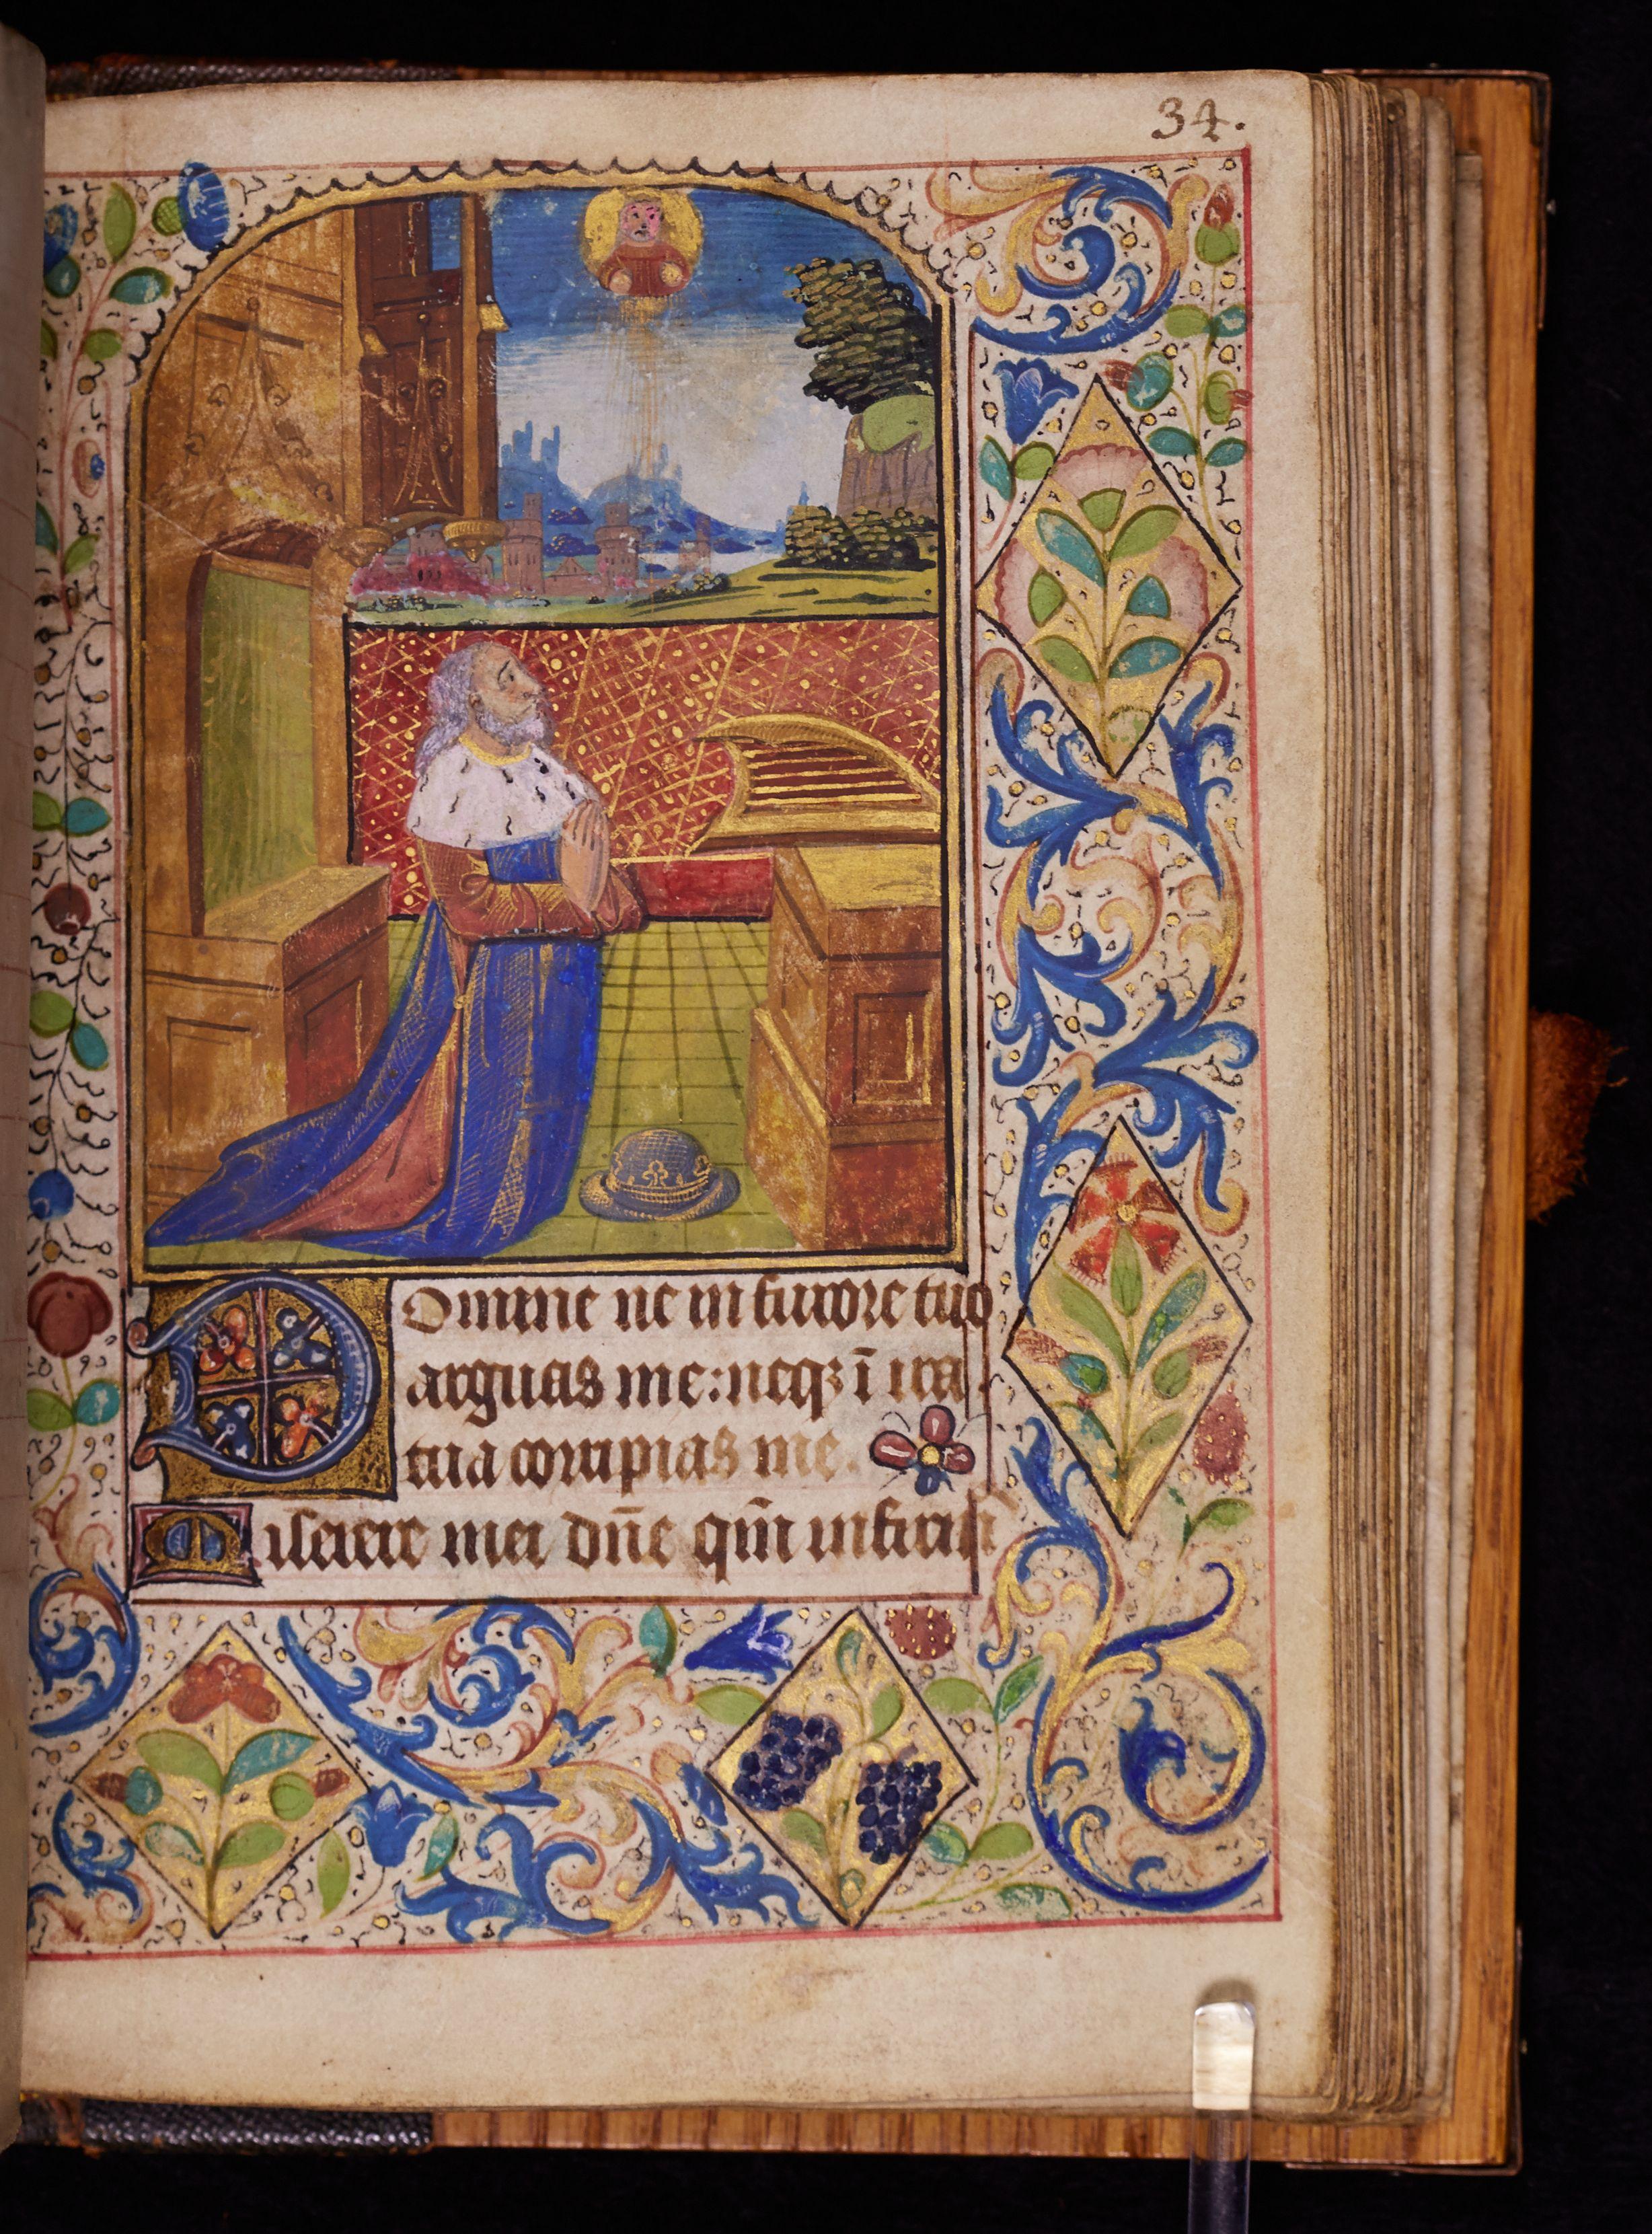 34.
Domine ne in furore tuo
arguas me: neqꝫ ī ira
tua corripias me.
Miserere mei dn̄e qm̄ infirmꝰ